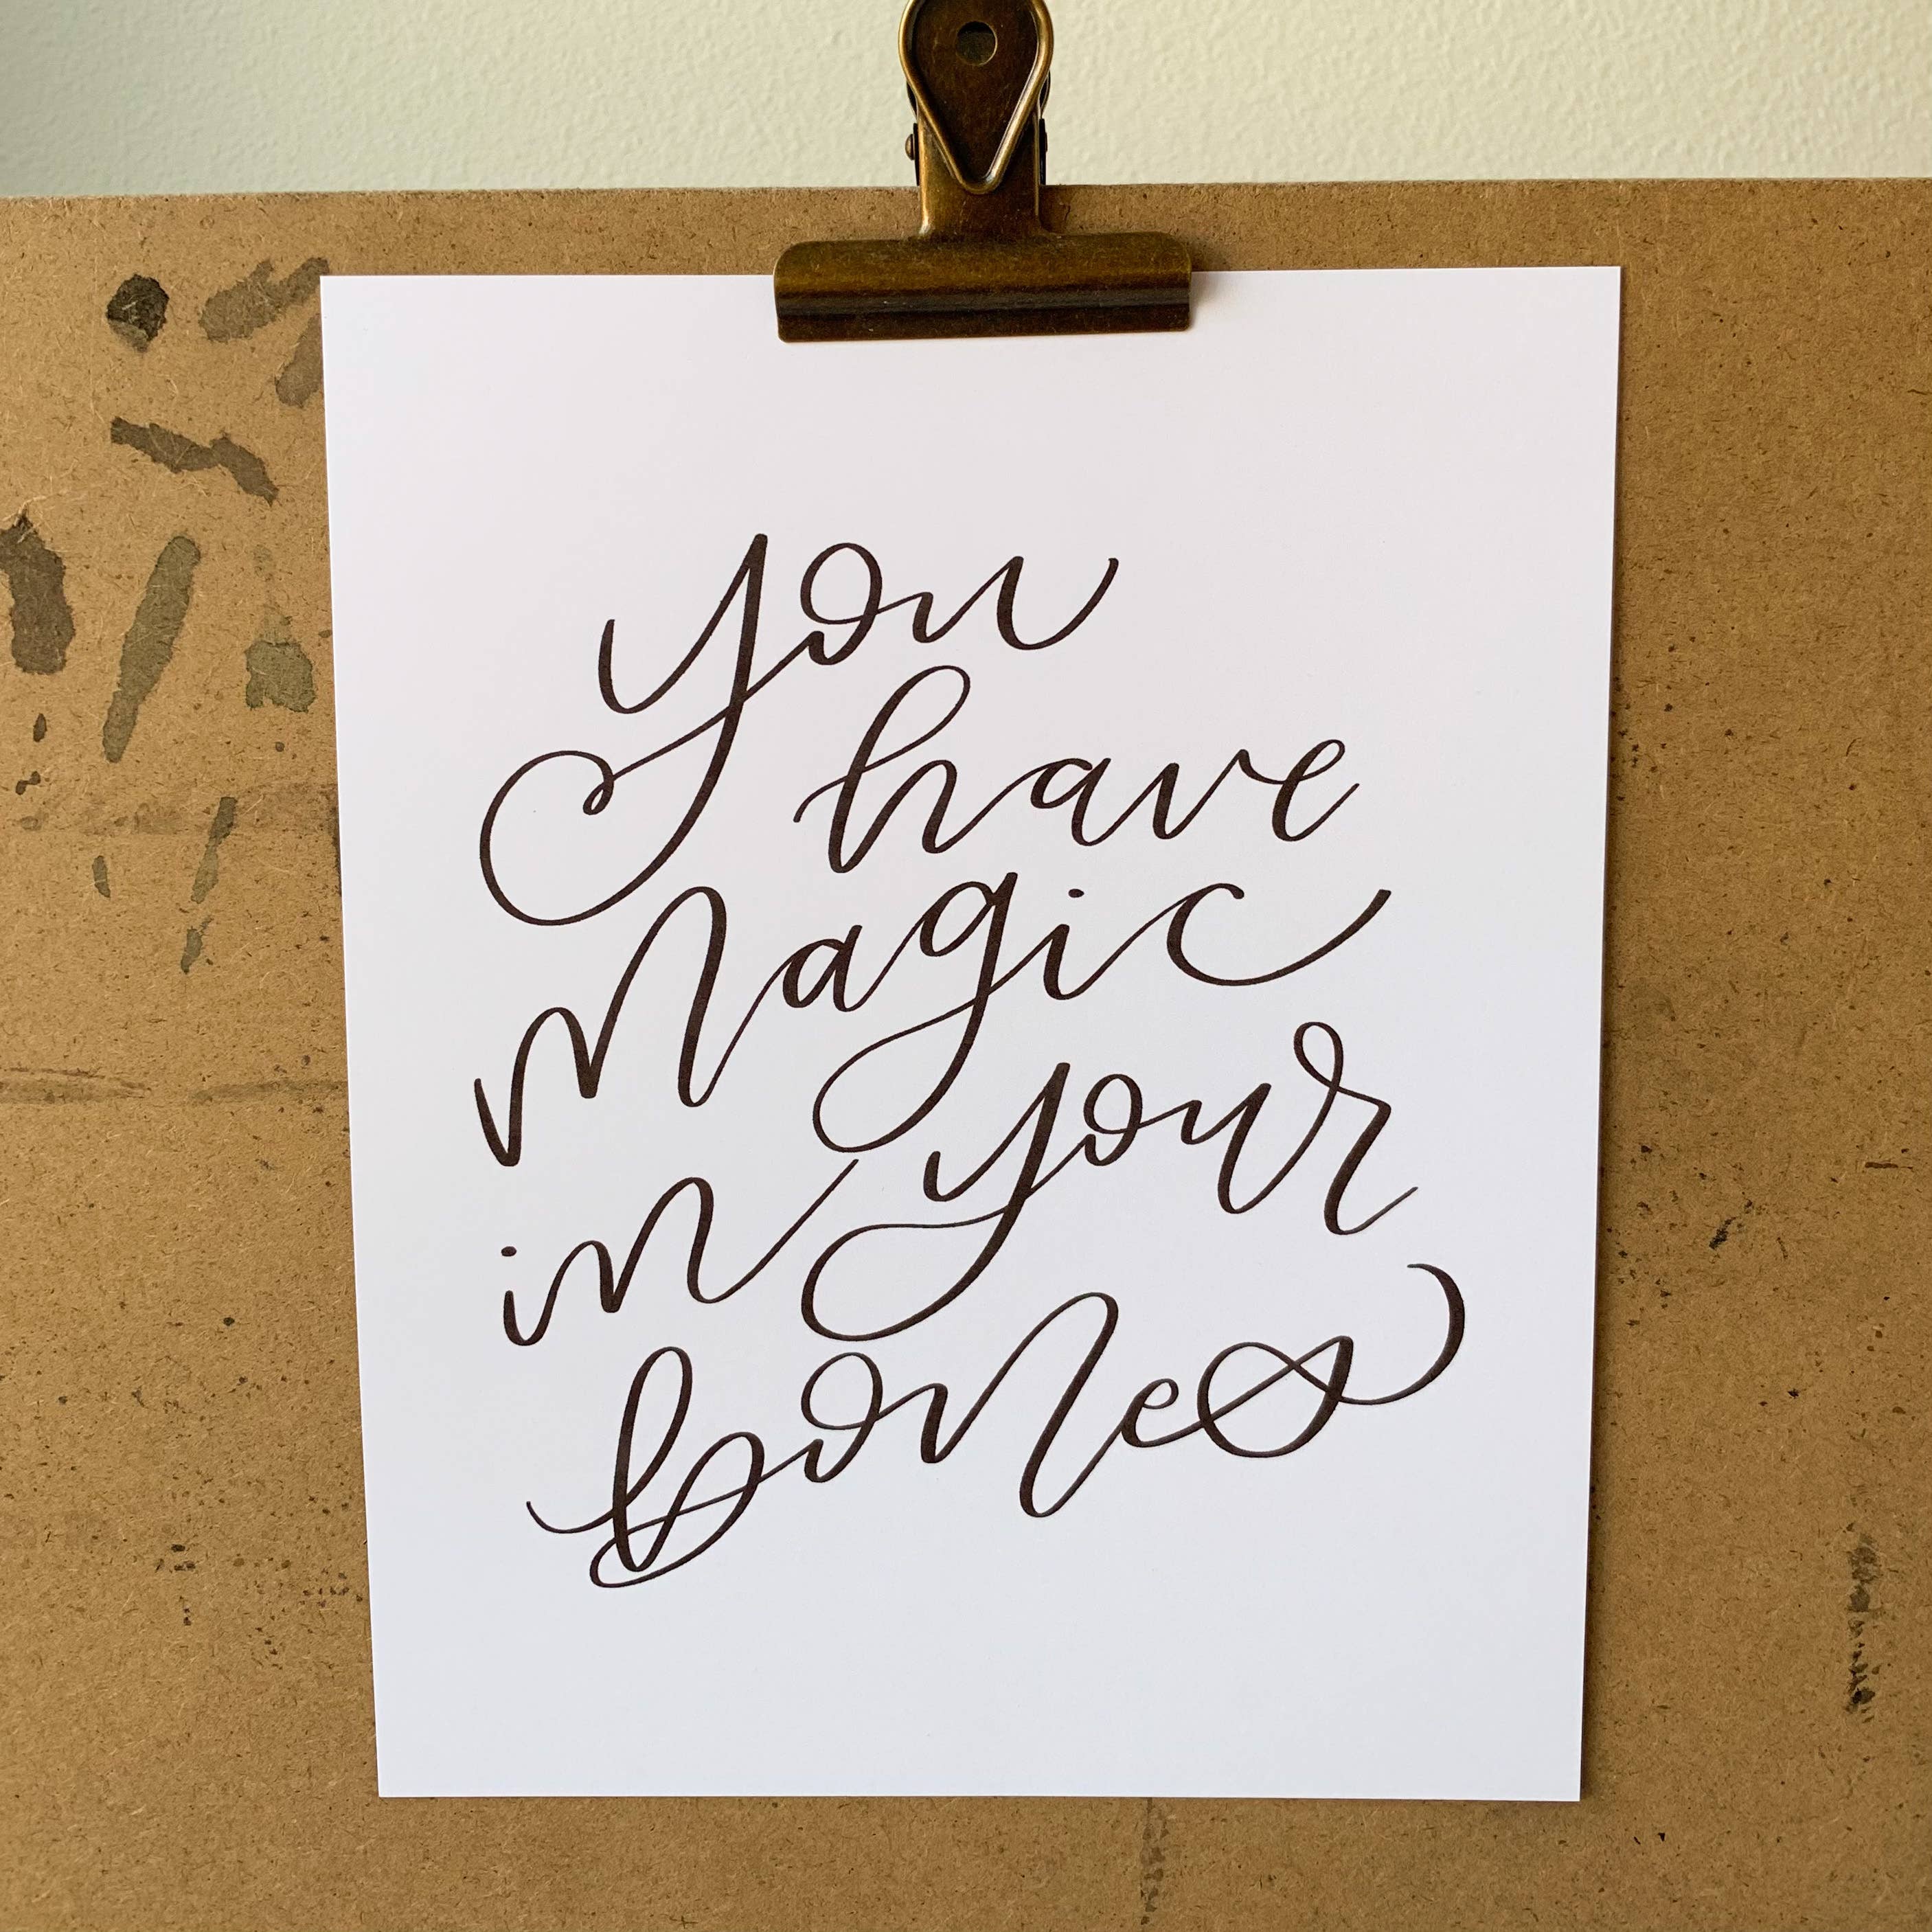 you
have
magic
in your
bones